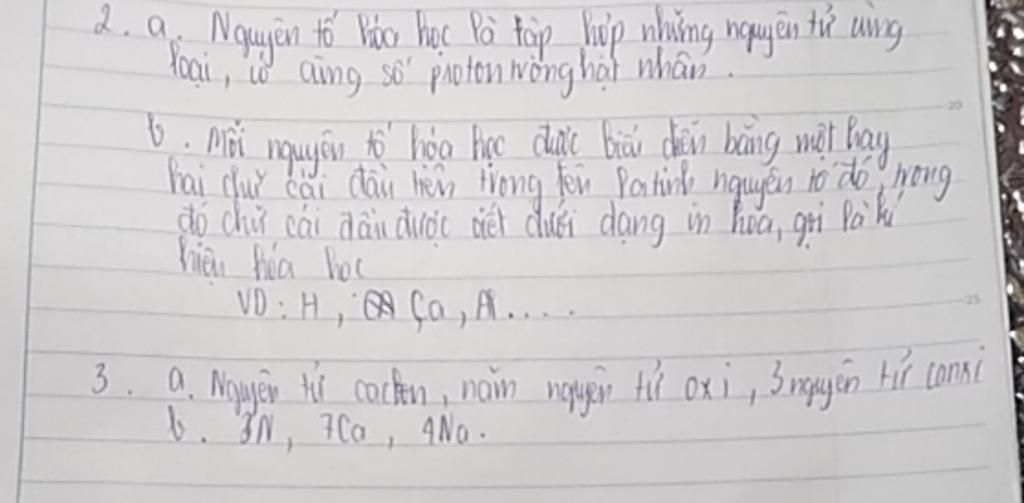 2. a. Nguyên tố hóa học là tập hợp những nguyên tử cùng
loại, có cùng số proton trong hạt nhân.
20
b. Mỗi nguyên tố hóa học được biểu diễn bằng một hay
hai chữ cái đầu tiên trong tên Latinh nguyên tố đó, trong
đó chữ cái đầu được viết dưới dạng in hoa, gọi là kí
hiệu hóa học
VD: H, Ca, Al....
25
3. a. Nguyên tử cacbon, năm nguyên tử oxi, 3 nguyên tử canxi
b. 3N, 7Ca, 4Na.